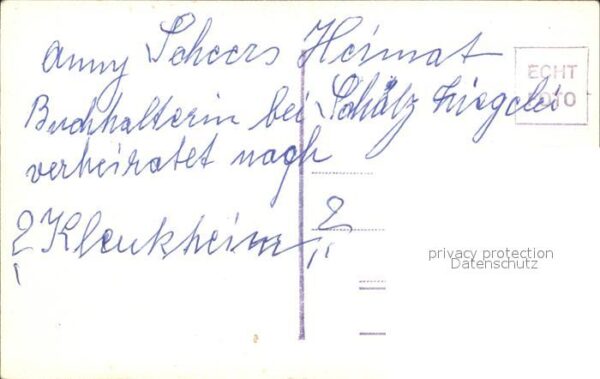 Anny Scheers Heimat
ECHT
FOTO
Buchhalterin bei Schätz Ziegelei
verheiratet nach
? Klenkheim ?
privacy protection
Datenschutz